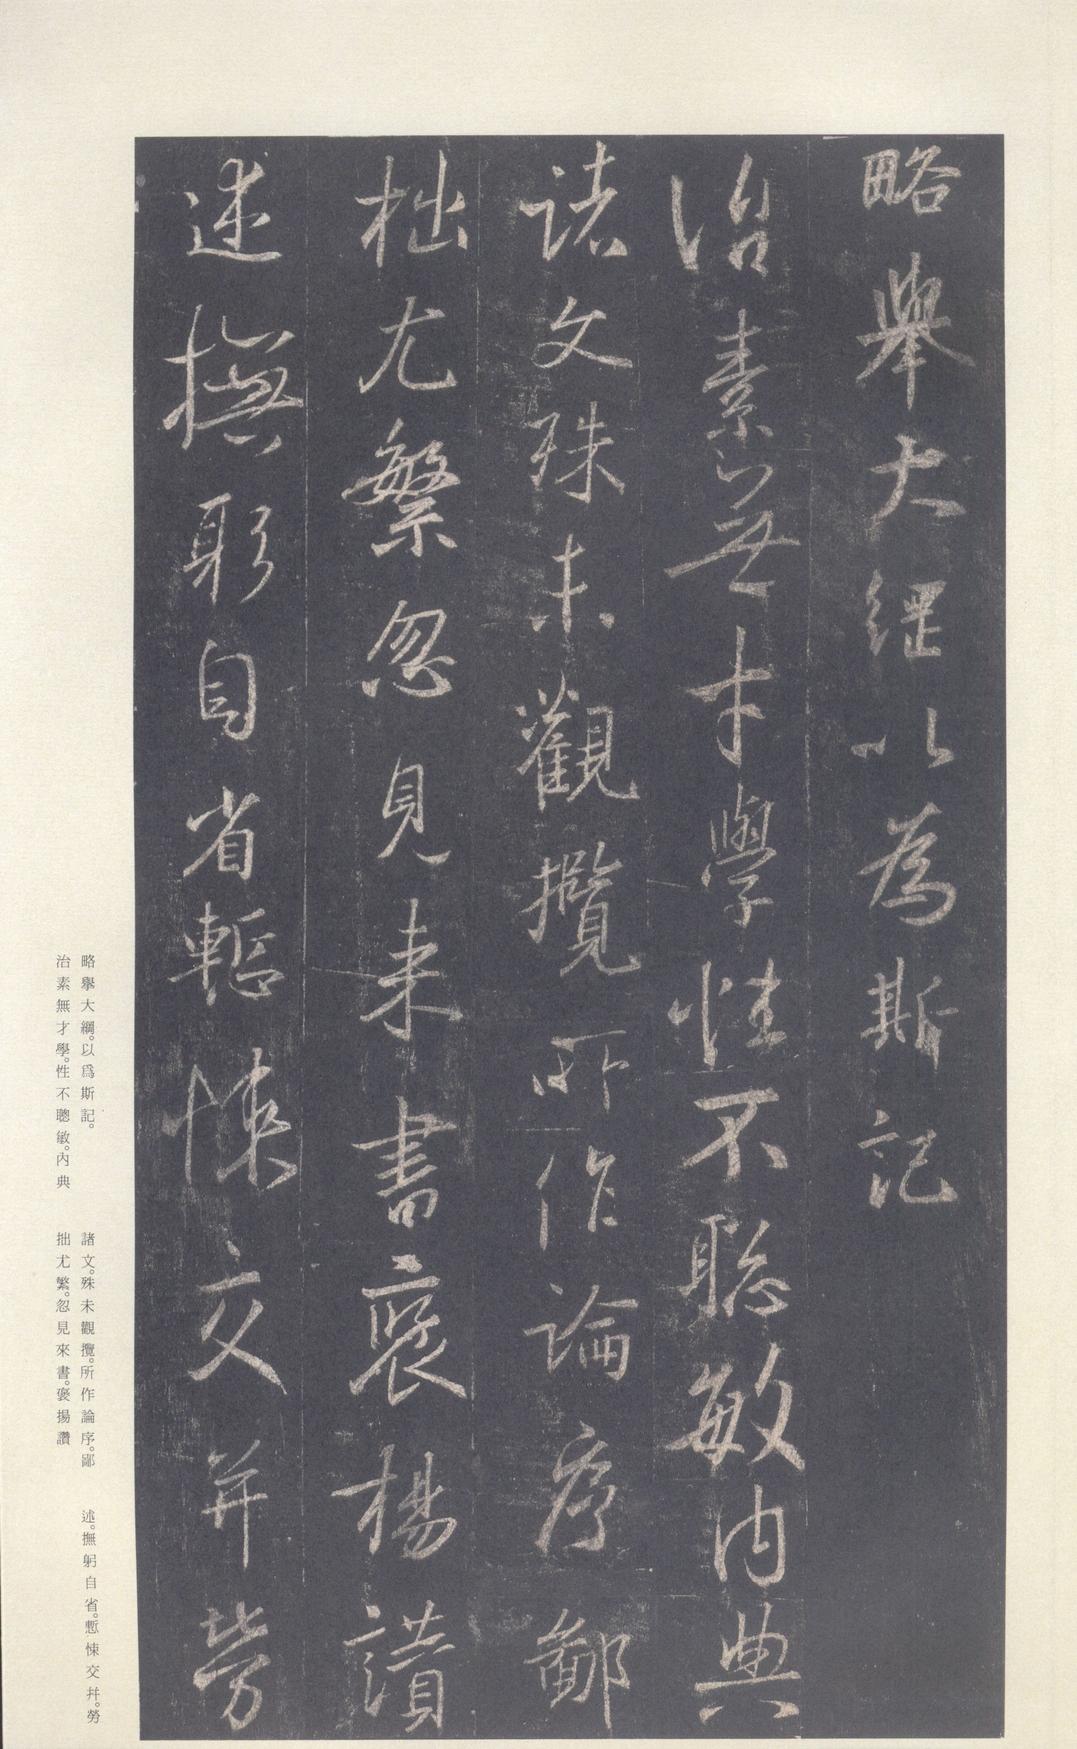 略舉大綱以為斯記
治素無才學性不聰敏內典
諸文殊未觀攬所作論序鄙
拙尤繁忽見來書褒揚讚
述撫躬自省慙悚交并勞
略舉大綱。以爲斯記。
治素無才學。性不聰敏。內典
諸文。殊未觀攬。所作論序。鄙
拙尤繁。忽見來書。褒揚讚
述。撫躬自省。慙悚交幷。勞